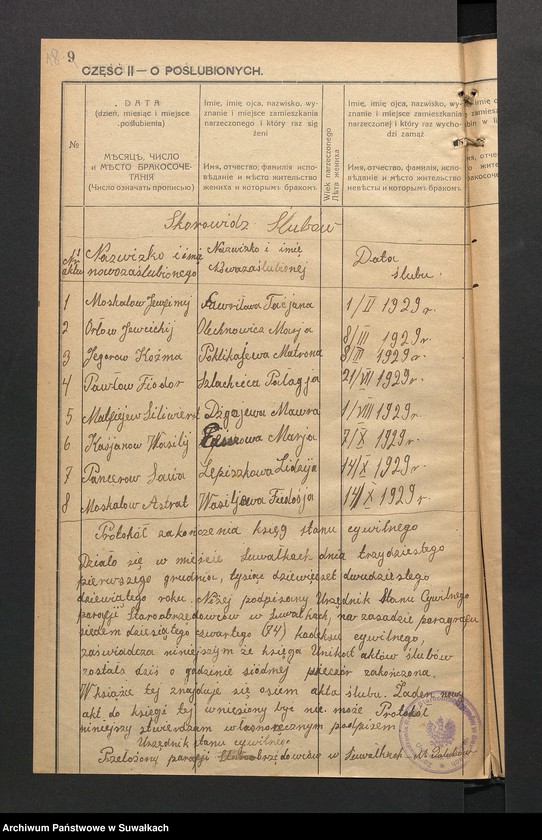 9
CZĘŚĆ II — O POŚLUBIONYCH.
№
DATA
(dzień, miesiąc i miejsce
poślubienia)
МѢСЯЦЪ, ЧИСЛО
и МѢСТО БРАКОСОЧЕ-
ТАНІЯ
(Число означать прописью)
Imię, imię ojca, nazwisko, wy-
znanie i miejsce zamieszkania
narzeczonego i który raz się
żeni
Имя, отчество, фамилія испо-
вѣданіе и мѣсто жительство
жениха и которымъ бракомъ
Wiek narzeczonego
Лѣта жениха
Imię, imię ojca, nazwisko, wy-
znanie i miejsce zamieszkania
narzeczonej i który raz wycho-
dzi zamąż
Имя, отчество, фамилія испо-
вѣданіе и мѣсто жительство
невѣсты и которымъ бракомъ
Skorowidz Ślubów
№ aktu
Nazwizko i imię
nowozaślubionego
Nazwizko i imię
Nowozaślubionej
Data
ślubu
1 Moskalow Jewfimij Gawriłowa Tacjana 1/II 1929 r.
2 Orłow Jewreicij Olechnowicz Marja 8/III 1929 r.
3 Jegorow Koźma Poklikajewa Matrona 8/III 1929 r.
4 Pawłow Fiodor Szlachcica Pelagja 21/VII 1929 r.
5 Małpiejew Siliwerst Digajewa Mawra 1/VIII 1929 r.
6 Kasjanow Wasilij Marja 7/X 1929 r.
7 Pancerow Sawa Lepiszkowa Lidzija 14/X 1929 r.
8 Moskalow Astrat Wasiljewa Fiedosja 14/X 1929 r.
Protokół zakończenia ksiąg stanu cywilnego
Działo się w mieście Suwałkach dnia trzydziestego
pierwszego grudnia, tysiąc dziewięćset dwudziestego
dziewiątego roku. Niżej podpisony Urzędnik Stanu Cywilnego
parafji Staroobrzędowców w Suwałkach, na zasadzie paragrafu
siedem dziesiątego czwartego (74) kodeksu cywilnego,
zaświadcza niniejszym że księga Unikat aktów ślubów
została dziś o godzinie siódmej wieczór zakończona.
W książce tej znajduje się osiem akta ślubu. Żaden nowy
akt do księgi tej wniesiony być nie może Protokół
niniejszy stwierdzam własnoręcznym podpisem
Urzędnik stanu cywilnego
Przełożony parafji Staroobrzędowców w Suwałkach
Archiwum Państwowe w Suwałkach